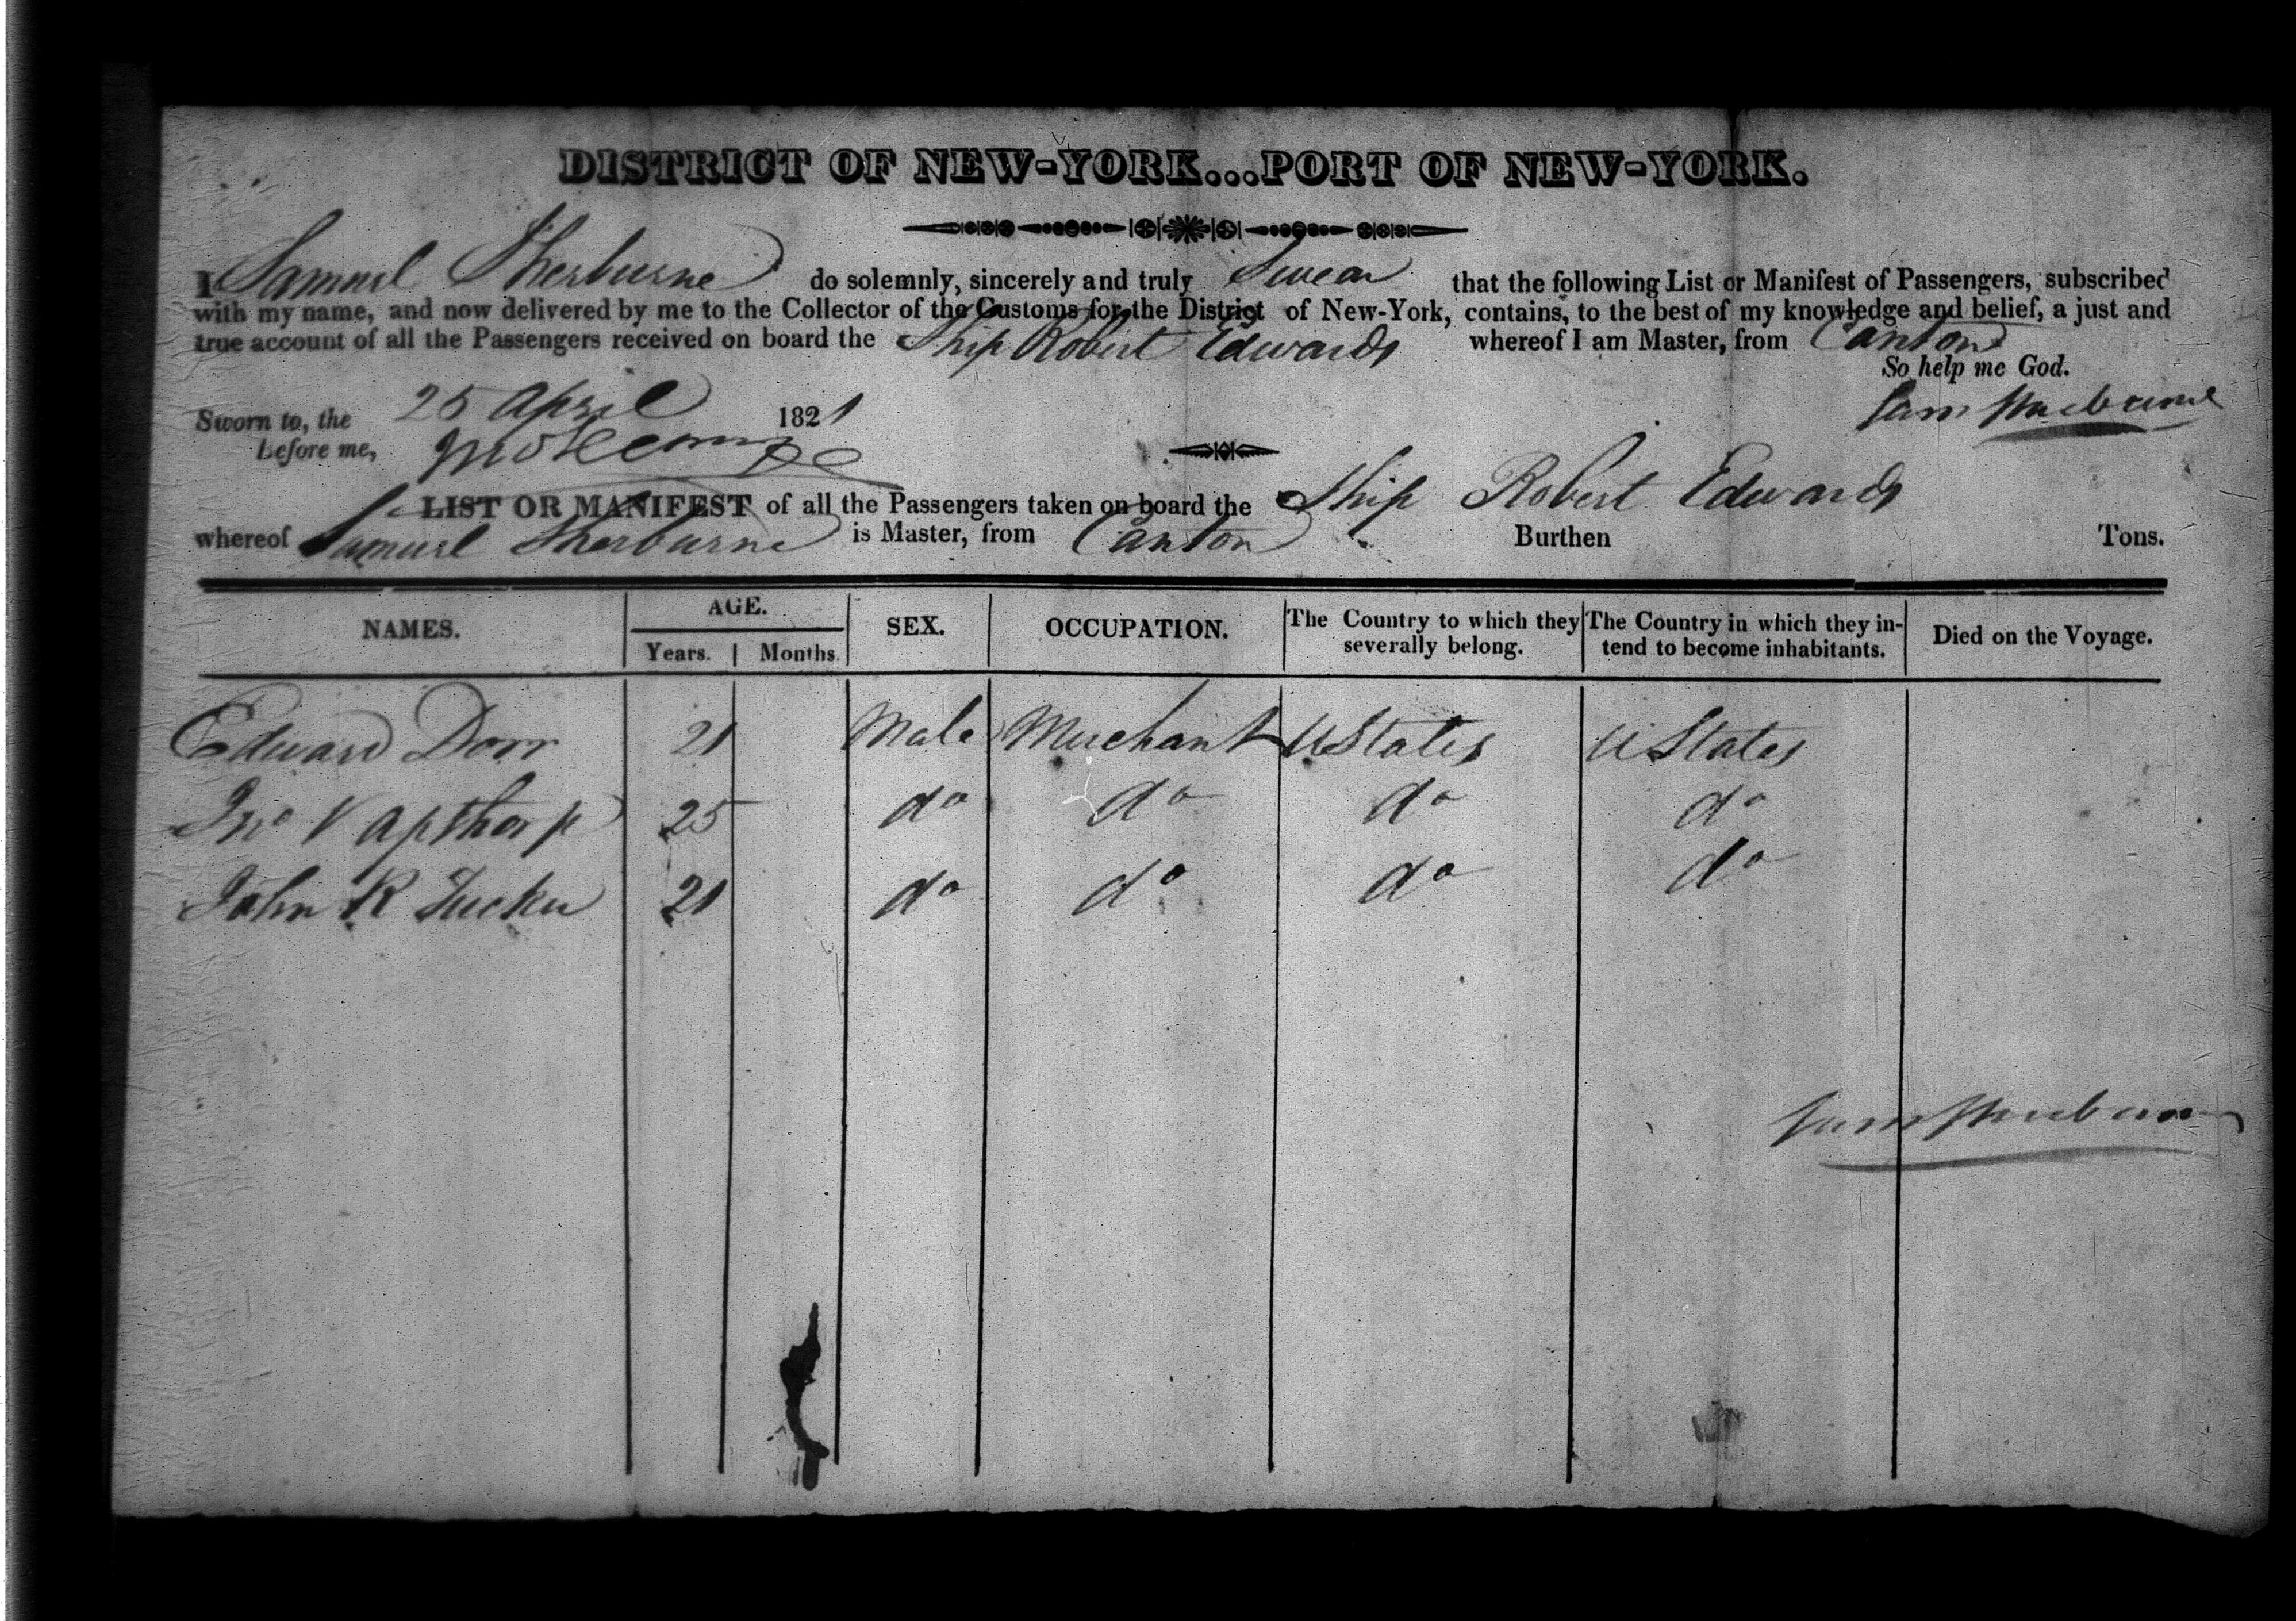 DISTRICT OF NEW-YORK...PORT OF NEW-YORK.
I Samuel Sherburne do solemnly, sincerely and truly Swear that the following List or Manifest of Passengers, subscribed
with my name, and now delivered by me to the Collector of the Customs for the District of New-York, contains, to the best of my knowledge and belief, a just and
true account of all the Passengers received on board the Ship Robert Edwards whereof I am Master, from Canton
So help me God.
Sworn to, the 25 April 1821
Sam Sherburne
before me,
LIST OR MANIFEST of all the Passengers taken on board the Ship Robert Edwards
whereof Samuel Sherburne is Master, from Canton Burthen Tons.
NAMES. AGE. SEX. OCCUPATION. The Country to which they severally belong. The Country in which they intend to become inhabitants. Died on the Voyage.
Years. Months.
Edward Dorr 21 Male Merchant U States U States
Jno V Apthorp 25 do do do do
John R Tucker 21 do do do do
Sam Sherburne